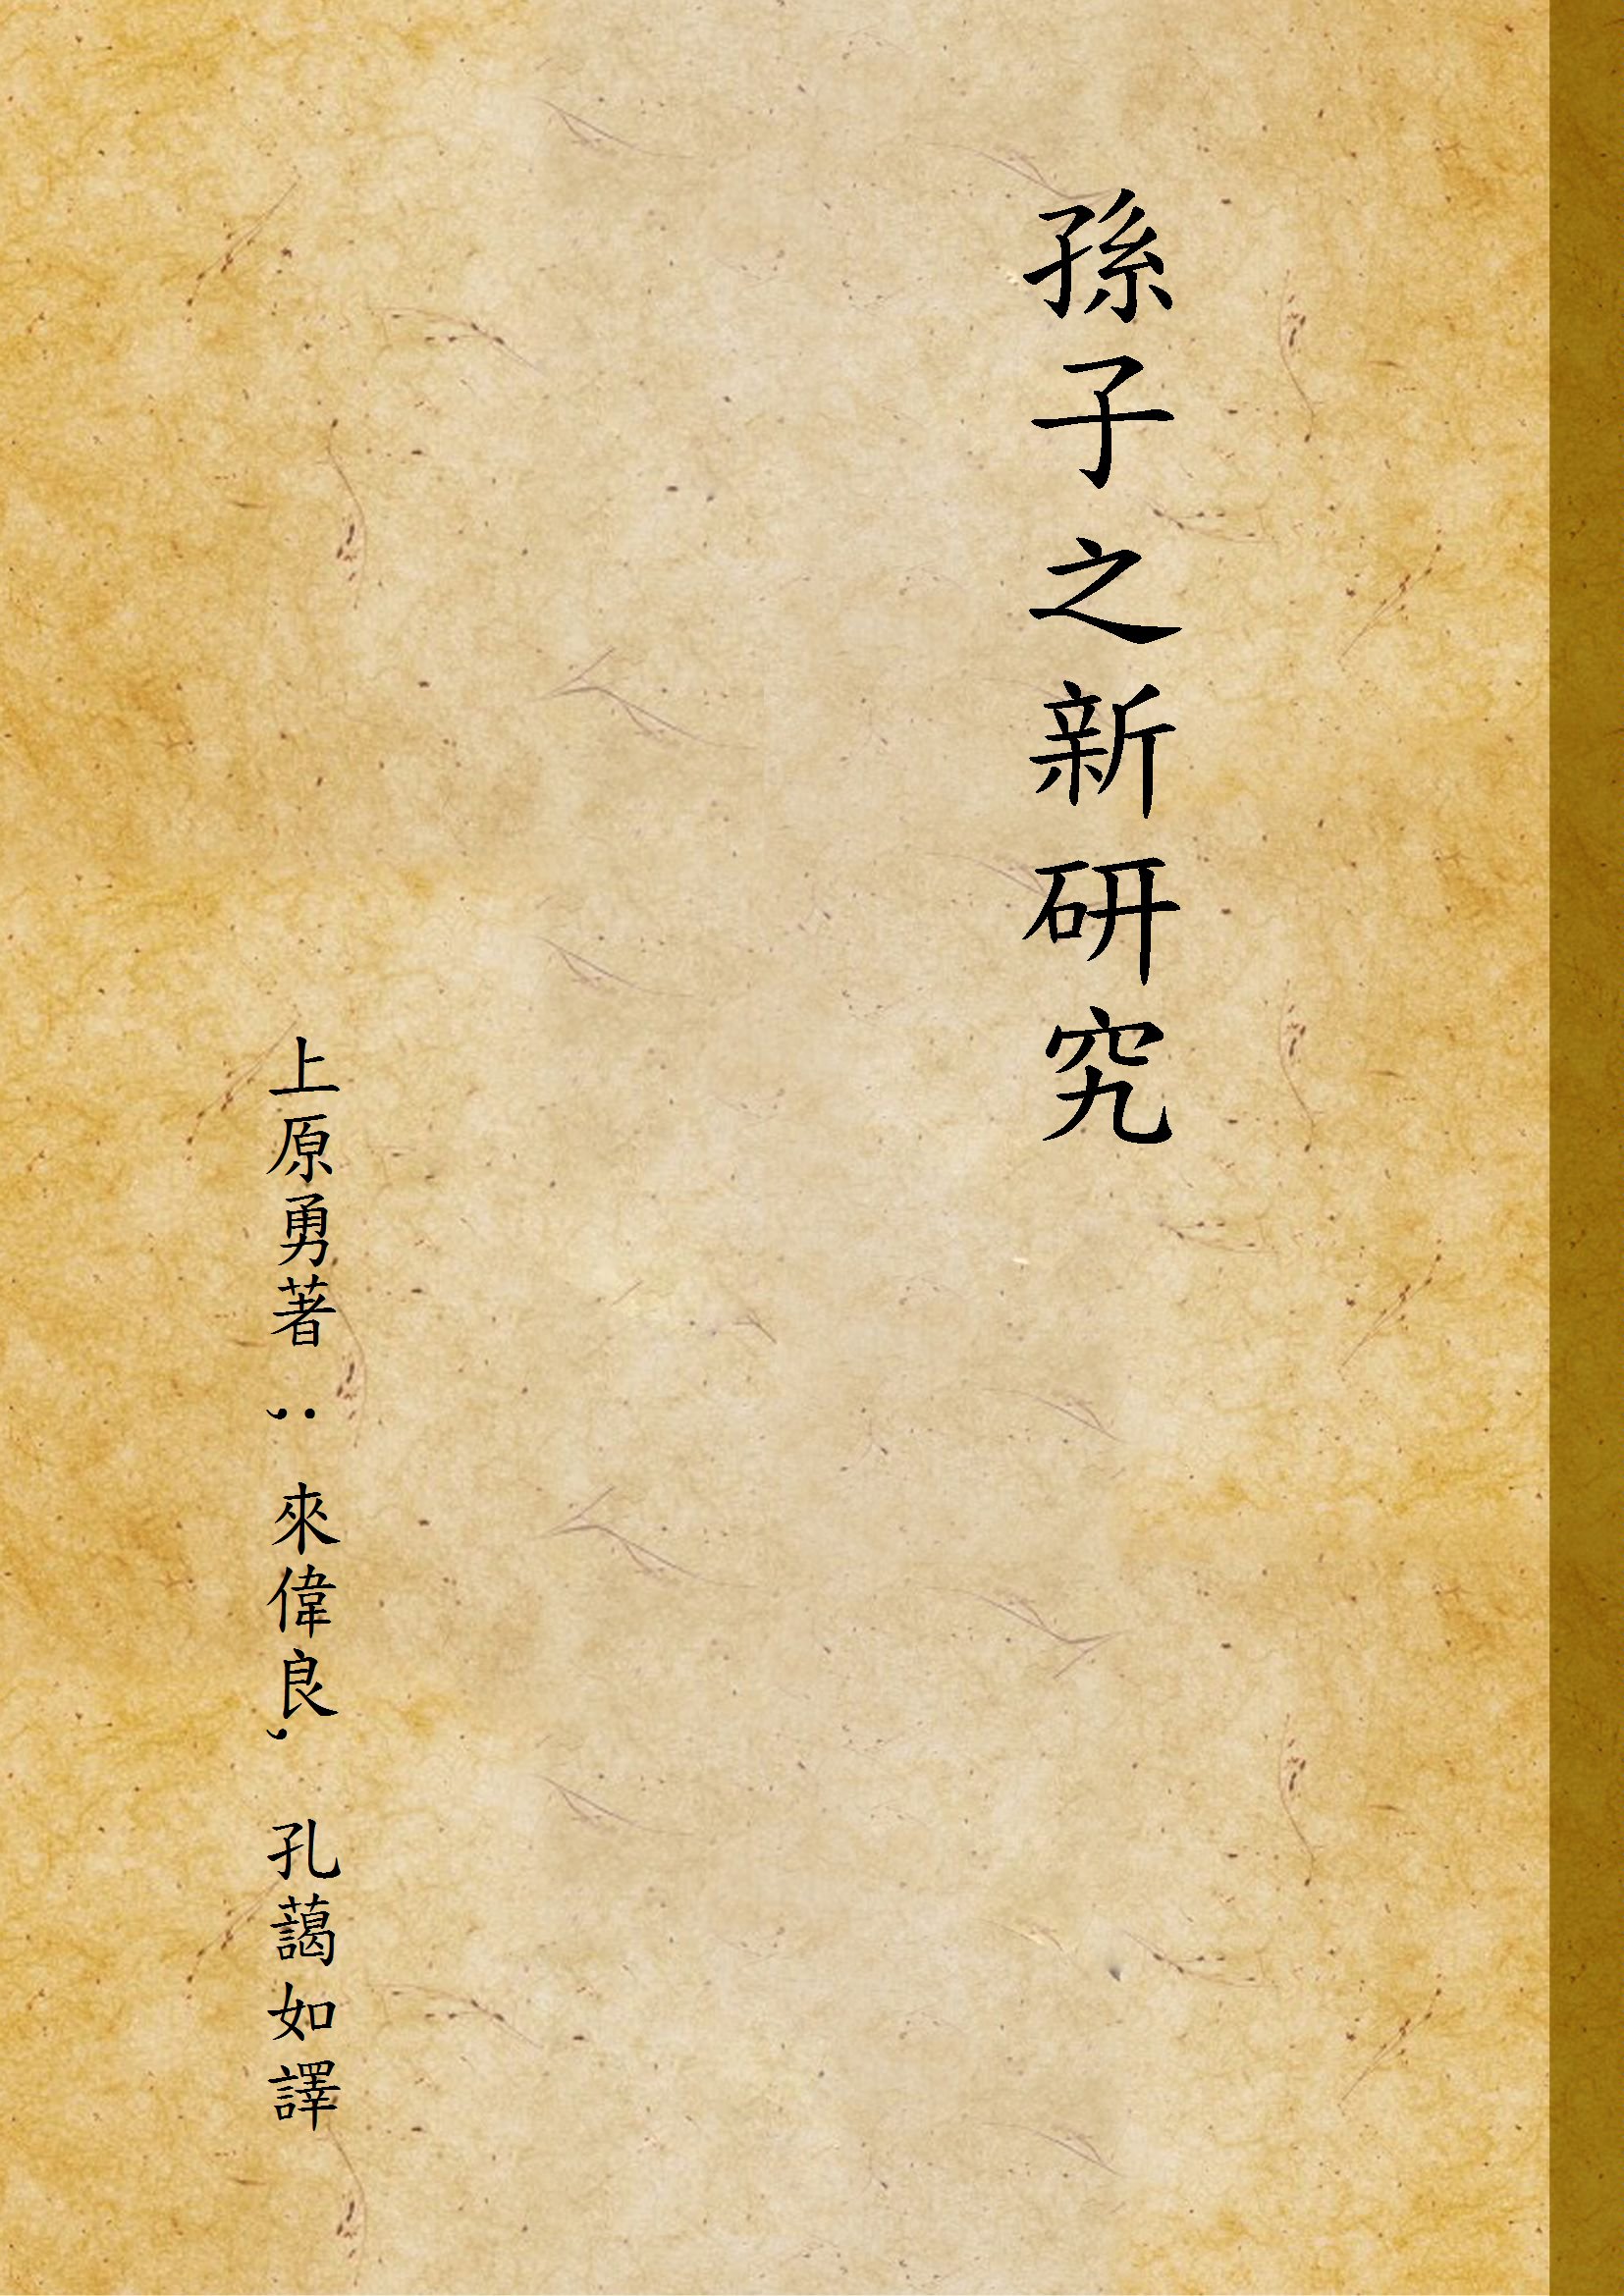 孫子之新研究
上原勇著 ; 來偉良, 孔藹如譯